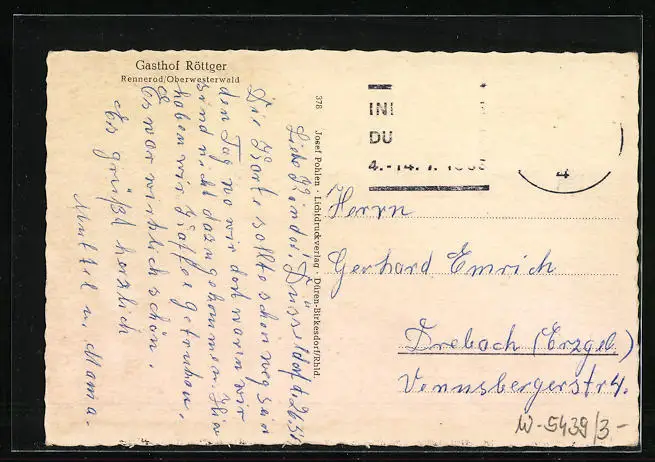 Gasthof Röttger
Rennerod/Oberwesterwald
378 Josef Pohlen · Lichtdruckverlag · Düren-Birkesdorf/Rhld.
INI
DU
4.-14.
4
Liebe Kinder! Düsseldorf
Die Karte sollte schon weg sein
den Tag wo wir dort waren wir
sind nicht dazu gekommen. Hier
haben wir Kaffee getrunken,
Es war wirklich schön.
Es grüßt herzlich
u. Mama.
Herrn
Gerhard Emrich
Drebach (Erzgeb.)
Venusbergerstr 4.
W-5439/3-